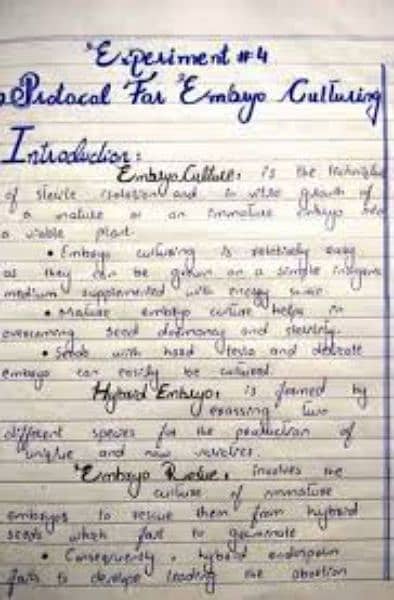 Experiment #4
Protocal For Embryo Culturing
Introduction:
Embryo Culture: is the technique
of sterile isolation and in vitro growth of
a mature or an immature embryo
a viable plant.
• Embryo culturing is relatively easy
as they can be grown on a simple
medium supplemented with energy
• Mature embryo culture helps in
overcoming seed dormancy and sterility.
• Seeds with hard testa and delicate
embryo can easily be cultured.
Hybrid Embryo: is formed by
crossing two
different species for the production of
unique and new varieties.
Embryo Rescue: involves the
culture of immature
embryos to rescue them from hybrid
seeds which fail to germinate
• Consequently, hybrid endosperm
fails to develop leading the abortion